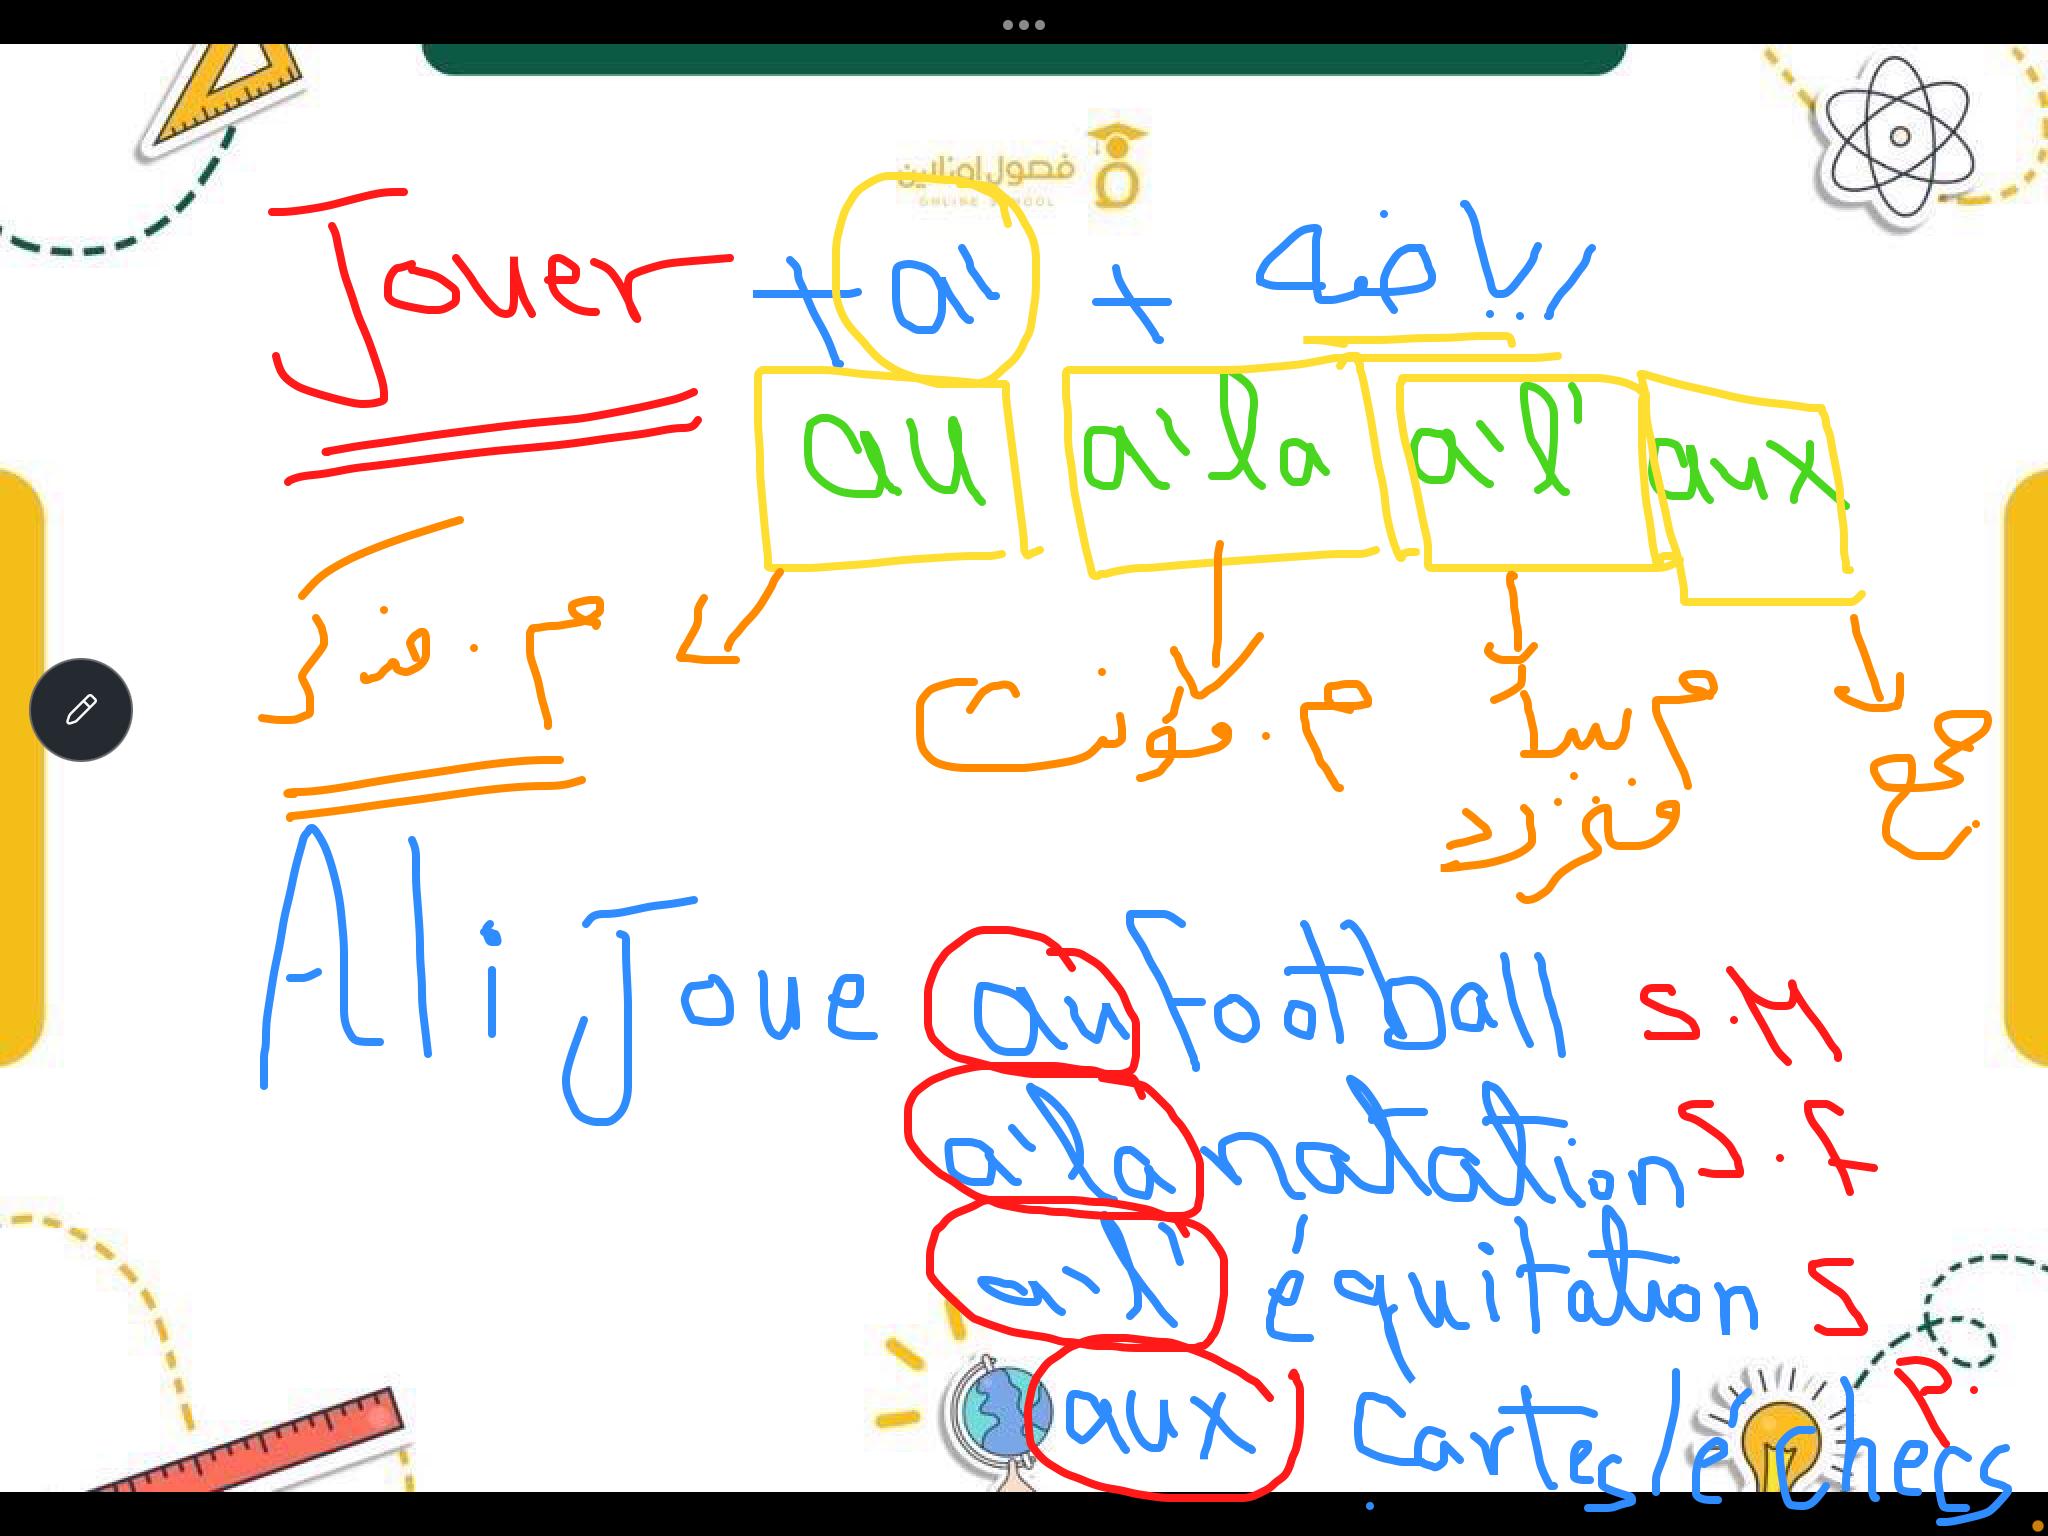 فصول اونلاين
ONLINE SCHOOL
Jouer + à + رياضة
au à la à l' aux
م. مذكر م. مؤنث م مبدأ جمع
Ali Joue au football S.M
à la natation S.F
à l' équitation S
aux Cartes/échecs P.